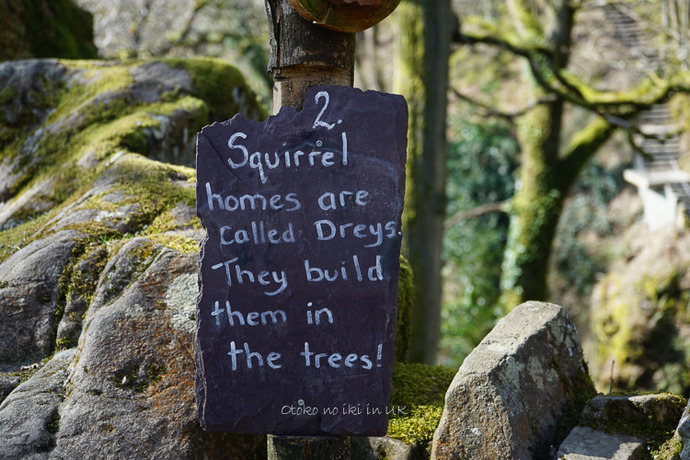 2.
Squirrel
homes are
called Dreys.
They build
them in
the trees!
Otoko no iki in UK